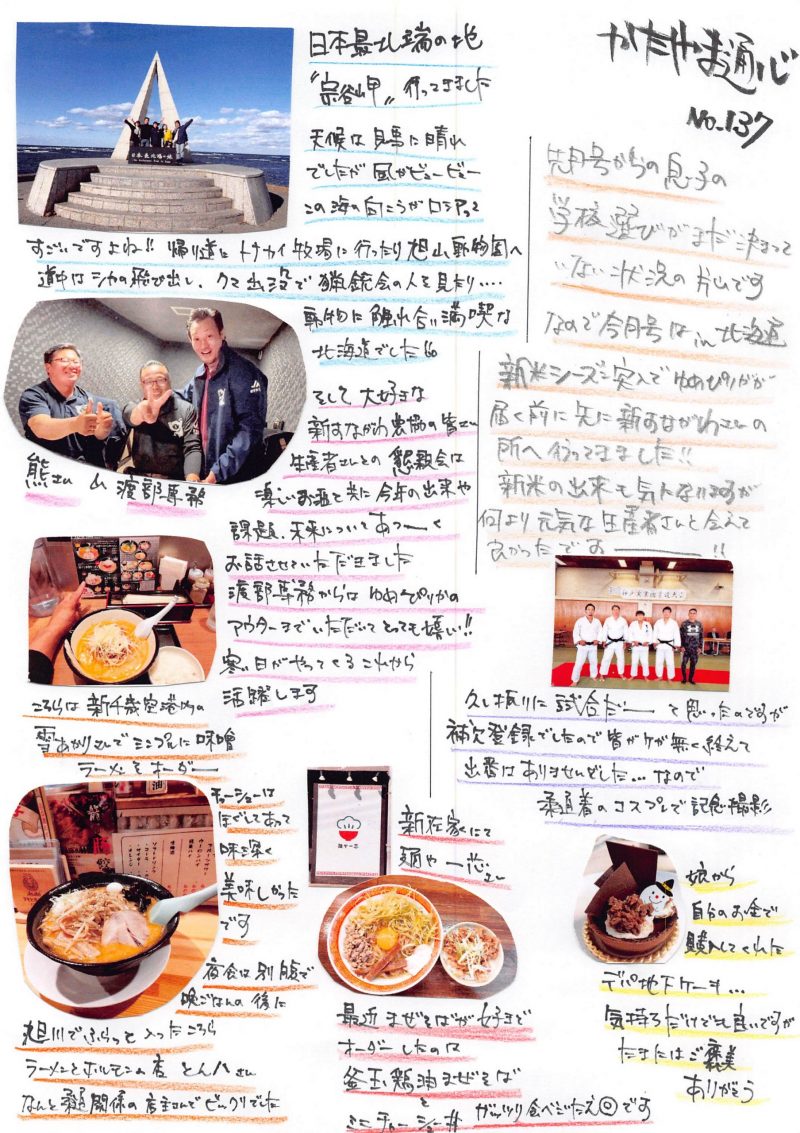 かたやま通心
No.137
先月号からの息子の
学校選びがまだ決まって
いない状況の片山です
なので今月号は in 北海道
新米シーズン突入でゆめぴりかが
届く前に先に新すながわさんの
所へ行ってきました!!
新米の出来も気になりますが
何より元気な生産者さんと会えて
良かったですーー!!
日本最北端の地
"宗谷岬" 行ってきました
天候は見事に晴れ
でしたが風がビュービュー
この海の向こうがロシアって
すごいですよね!! 帰り道にトナカイ牧場に行ったり旭山動物園へ
道中はシカの飛び出し、クマ出没で猟銃会の人を見たり....
動物に触れ合い満喫な
北海道でした
日本最北端の地
そして大好きな
新すながわ農協の皆さん
生産者さんとの懇親会は
楽しいお酒と共に今年の出来や
課題、未来についてあつーく
お話させていただきました
渡部専務からはゆめぴりかの
アウターまでいただいてとっても嬉しい!!
寒い日がやってくるこれから
活躍します
熊さん 渡部専務
こちらは新千歳空港内の
雪あかりさんでミニコプルに味噌
ラーメンをオーダー
チャーシューは
ほぐしてあって
味深く
美味しかった
です
夜食は別腹で
晩ごはんの後に
旭川でふらっと入ったこちら
ラーメンとホルモンの店 とん八さん
なんと柔道関係の店主さんでビックリでした
久し振りに試合だー って思ったのですが
補欠登録でしたので皆がケガ無く終えて
出番はありませんでした...なので
柔道着のコスプレで記念撮影
新在家にて
麺や一芯さん
最近まぜそばが好きで
オーダーしたのは
釜玉鶏油まぜそば
と
ミニチャーシュー丼 ガッツリ食べごたえ◎です
娘から
自分のお金で
購入してくれた
デパ地下ケーキ...
気持ちだけでも良いですが
たまにはご褒美
ありがとう